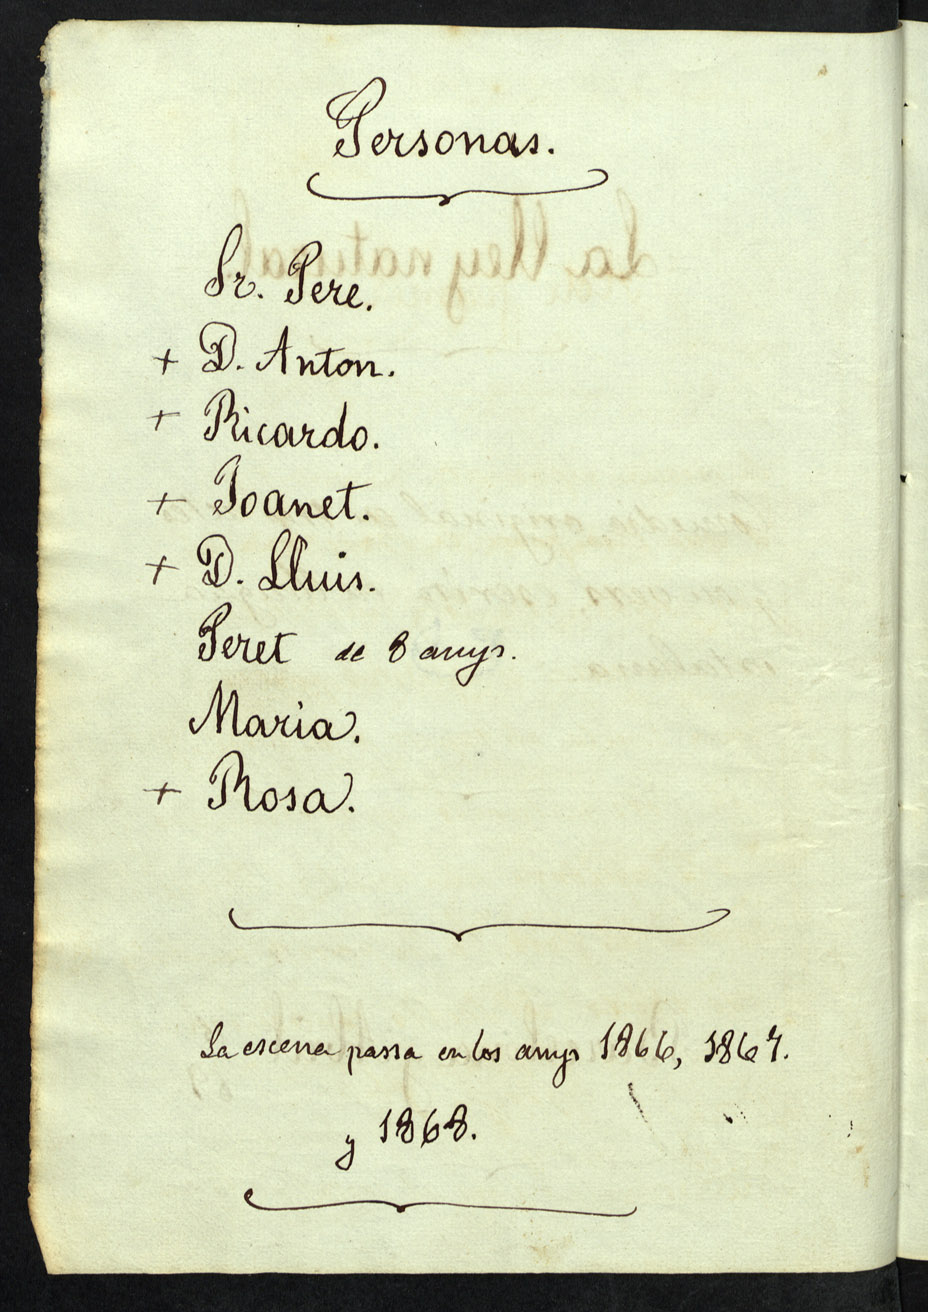 Personas.
Sr. Pere.
+ D. Anton.
+ Ricardo.
+ Joanet.
+ D. Lluis.
Peret de 8 anys.
Maria.
+ Rosa.
La escena passa en los anys 1866, 1867.
y 1868.